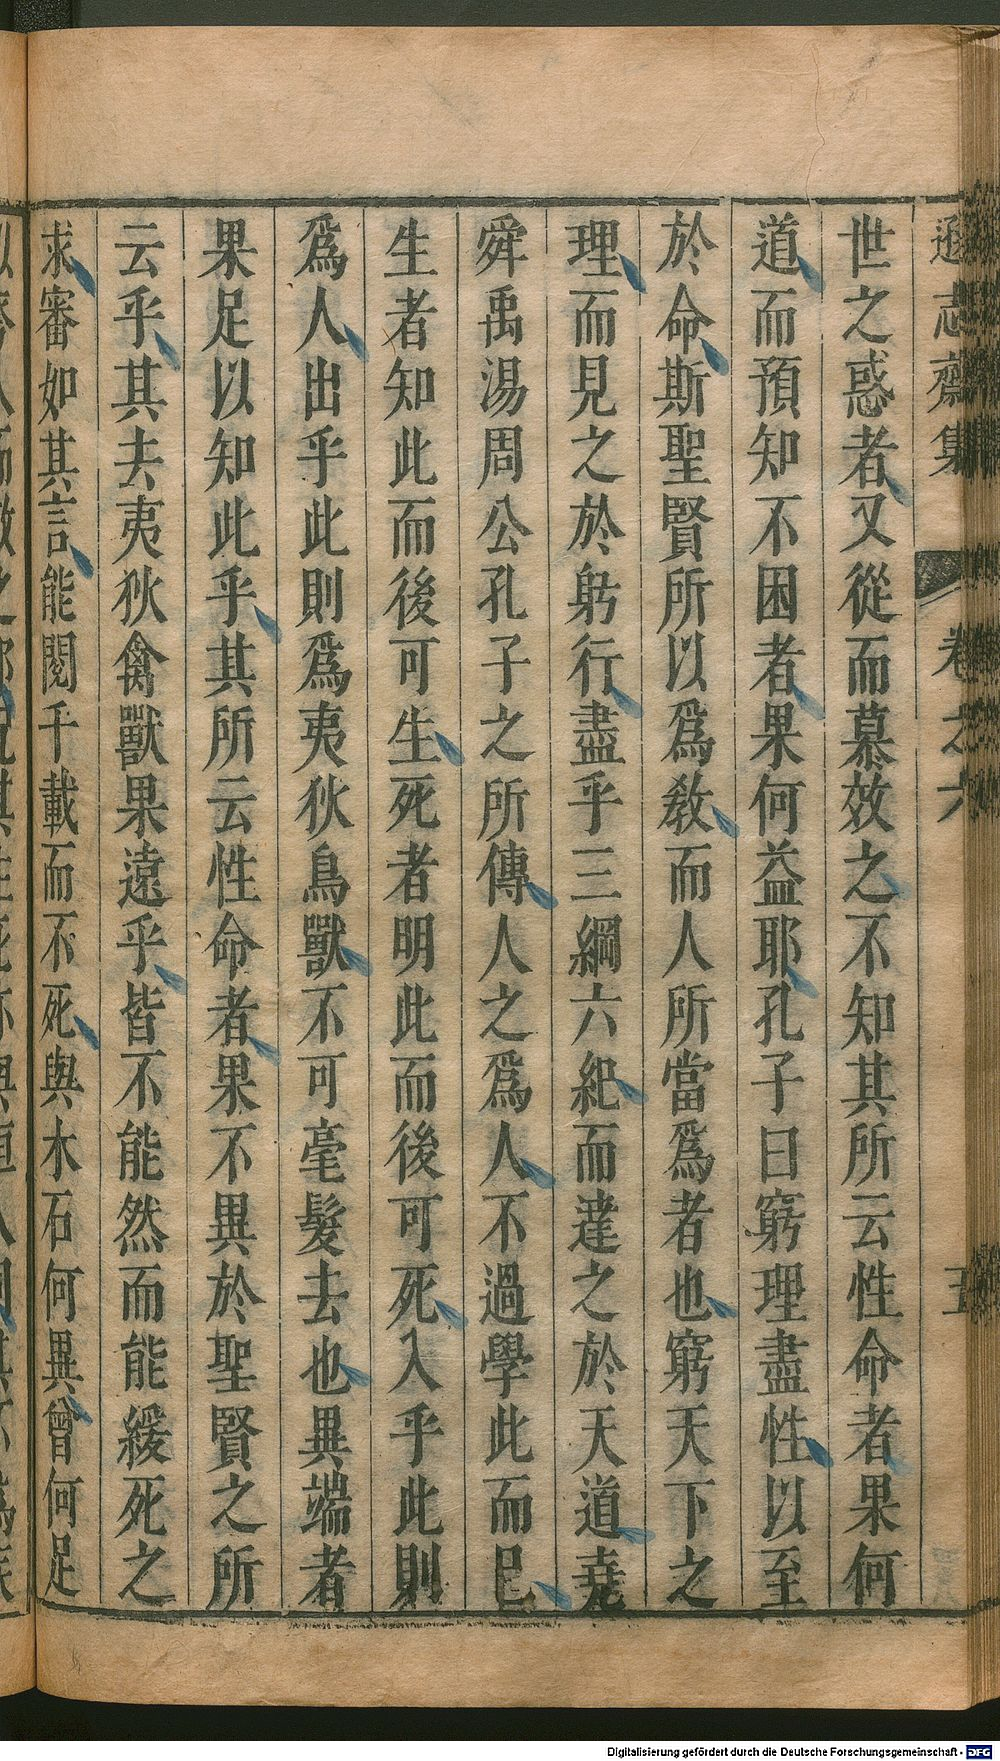 遜志齋集 卷之六 五
世之惑者又從而慕效之不知其所云性命者果何
道而預知不困者果何益耶孔子曰窮理盡性以至
於命斯聖賢所以爲教而人所當爲者也窮天下之
理而見之於躬行盡乎三綱六紀而達之於天道堯
舜禹湯周公孔子之所傳人之爲人不過學此而已
生者知此而後可生死者明此而後可死入乎此則
爲人出乎此則爲夷狄鳥獸不可毫髮去也異端者
果足以知此乎其所云性命者果不異於聖賢之所
云乎其去夷狄禽獸果遠乎皆不能然而能緩死之
求審如其言能閱千載而不死與木石何異曾何足
Digitalisierung gefördert durch die Deutsche Forschungsgemeinschaft - DFG